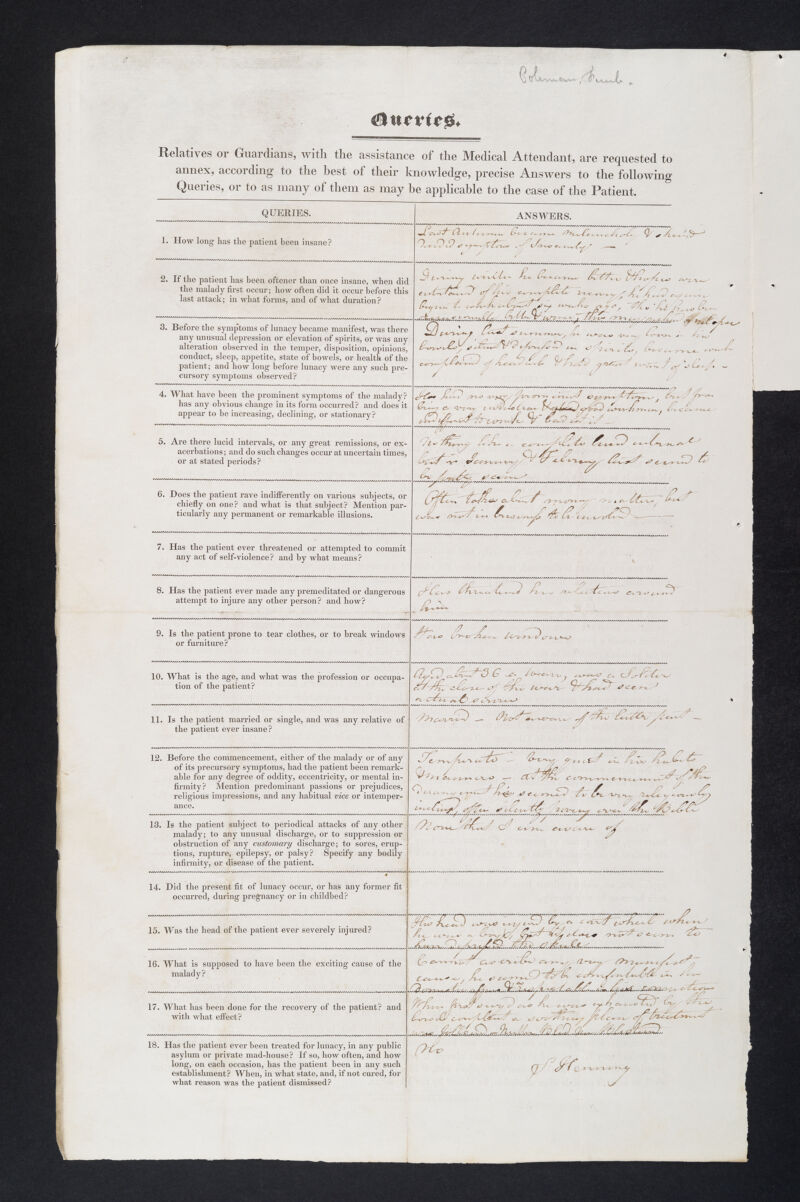 Coleman,
Queries.
Relatives or Guardians, with the assistance of the Medical Attendant, are requested to
annex, according to the best of their knowledge, precise Answers to the following
Queries, or to as many of them as may be applicable to the case of the Patient.
QUERIES.
ANSWERS.
1. How long has the patient been insane?
Last Autumn became melancholy & shew'd
decided symptoms of Insanity —
2. If the patient has been oftener than once insane, when did
the malady first occur; how often did it occur before this
last attack; in what forms, and of what duration?
During winter he became better & hopes were
entertained of his complete recovery, he had again
six weeks ago,
occasionally better & worse,
3. Before the symptoms of lunacy became manifest, was there
any unusual depression or elevation of spirits, or was any
alteration observed in the temper, disposition, opinions,
conduct, sleep, appetite, state of bowels, or health of the
patient; and how long before lunacy were any such pre-
cursory symptoms observed?
During last summer, he was very
bowels & dejected in spirits, became weak
complained of headach & had great want of sleep. –
4. What have been the prominent symptoms of the malady?
has any obvious change in its form occurred? and does it
appear to be increasing, declining, or stationary?
Has had no very prominent symptom, but from
being a very industrious & good workman, became
indifferent to work & bad at it –
5. Are there lucid intervals, or any great remissions, or ex-
acerbations; and do such changes occur at uncertain times,
or at stated periods?
Nothing like a complete lucid interval
but in January & February last seemed to
be
6. Does the patient rave indifferently on various subjects, or
chiefly on one? and what is that subject? Mention par-
ticularly any permanent or remarkable illusions.
Often talks about money matters, but
was not in business to be involved —
7. Has the patient ever threatened or attempted to commit
any act of self-violence? and by what means?
8. Has the patient ever made any premeditated or dangerous
attempt to injure any other person? and how?
Has threatened his relatives around
him
9. Is the patient prone to tear clothes, or to break windows
or furniture?
Has broken windows
10. What is the age, and what was the profession or occupa-
tion of the patient?
Aged about 36 a weaver, was a Soldier
at the close of the war & had seen
actual service
11. Is the patient married or single, and was any relative of
the patient ever insane?
Married – Not aware of the latter point –
12. Before the commencement, either of the malady or of any
of its precursory symptoms, had the patient been remark-
able for any degree of oddity, eccentricity, or mental in-
firmity? Mention predominant passions or prejudices,
religious impressions, and any habitual vice or intemper-
ance.
Temperate – Very quiet in his habits
& manners – at the commencement of the
derangement he seemed to be very religiously
inclined, often silently poring over the Bible
13. Is the patient subject to periodical attacks of any other
malady; to any unusual discharge, or to suppression or
obstruction of any customary discharge; to sores, erup-
tions, rupture, epilepsy, or palsy? Specify any bodily
infirmity, or disease of the patient.
None that I am aware of
14. Did the present fit of lunacy occur, or has any former fit
occurred, during pregnancy or in childbed?
15. Was the head of the patient ever severely injured?
His head was injured by a cart wheel when
he was a boy, but it does not seem to
have depressed the skull
16. What is supposed to have been the exciting cause of the
malady?
Cannot ascribe any very manifest
cause, he seemed to be comfortable in his
Domestic affairs & respectable in his connections
17. What has been done for the recovery of the patient? and
with what effect?
When first seized as he was exhausted by the
bowel complaint a soothing plan of treatment
was followed – Neither Bled nor Blistered
18. Has the patient ever been treated for lunacy, in any public
asylum or private mad-house? If so, how often, and how
long, on each occasion, has the patient been in any such
establishment? When, in what state, and, if not cured, for
what reason was the patient dismissed?
No